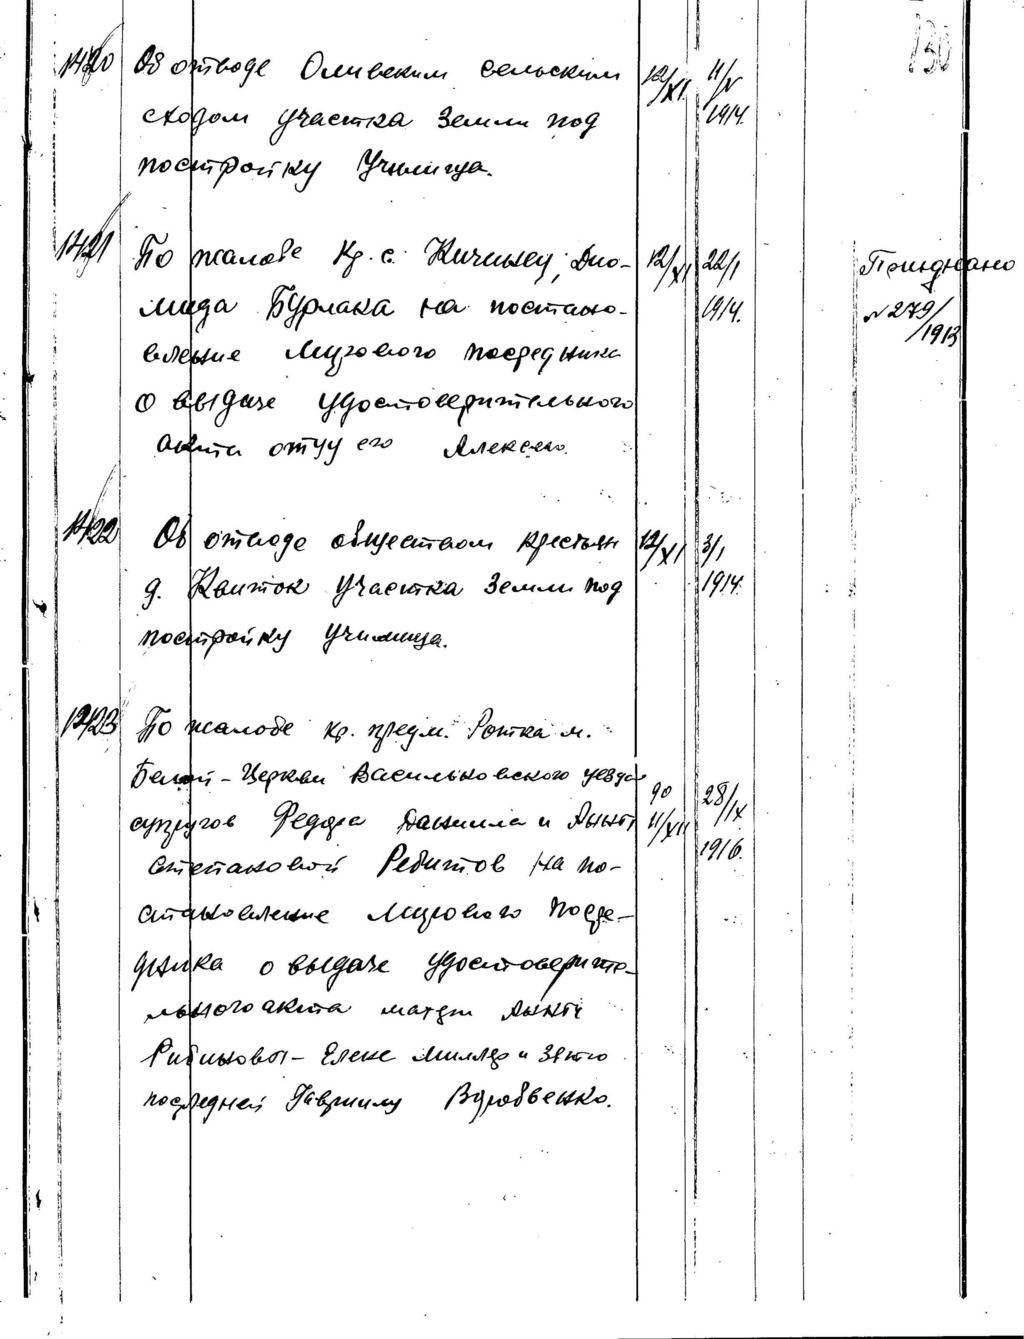 130
1420 Об отводе Ольшским сельским 12/XI 11/V
сходом участка земли под 1914.
постройку Училища.
1421 По жалобе кр. с. Кичинец, Дио- 12/XI 22/I Присоединено
мида Бурлака на постано- 1914. № 279/1913
вление Мирового посредника
о выдаче удостоверительного
акта отцу его Алексею.
1422 Об отводе обществом крестьян 12/XI 3/I
д. Квиток участка земли под 1914.
постройку училища.
1423 По жалобе кр. предм. Роткa м.
Белой-Церкви Васильковского уезда
супругов Федора Даниила и Анны 11/XII 28/IX
Степановой Ребитов на по- 1916.
становление Мирового Посре-
дника о выдаче удостоверите-
льного акта матери Анны
Елене Миллер и зятю
последней Гавриилу Воробвенко.